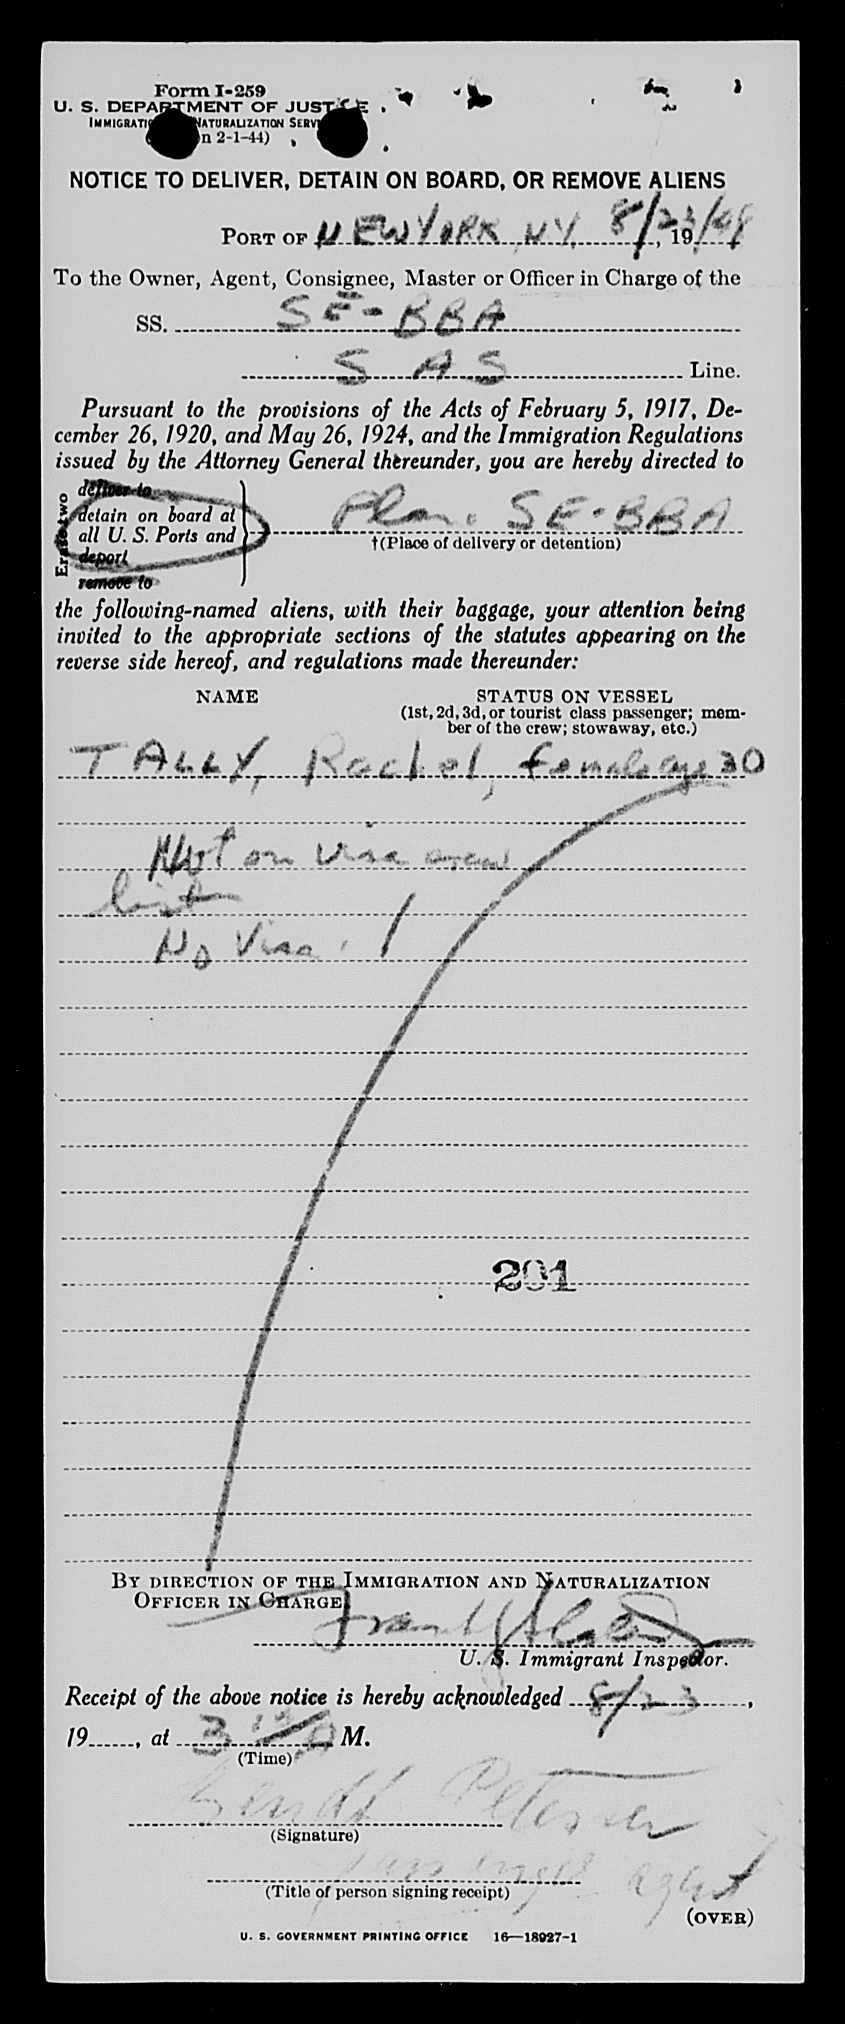 Form I-259
U. S. DEPARTMENT OF JUSTICE
IMMIGRATION NATURALIZATION SERV
n 2-1-44)
NOTICE TO DELIVER, DETAIN ON BOARD, OR REMOVE ALIENS
PORT OF NEW YORK, NY. 8/23/48, 19
To the Owner, Agent, Consignee, Master or Officer in Charge of the
SS. SE-BBA
SAS Line.
Pursuant to the provisions of the Acts of February 5, 1917, De-
cember 26, 1920, and May 26, 1924, and the Immigration Regulations
issued by the Attorney General thereunder, you are hereby directed to
Erase two
deliver to
detain on board at
all U. S. Ports and
deport
remove to
Plane SE-BBA
†(Place of delivery or detention)
the following-named aliens, with their baggage, your attention being
invited to the appropriate sections of the statutes appearing on the
reverse side hereof, and regulations made thereunder:
NAME STATUS ON VESSEL
(1st, 2d, 3d, or tourist class passenger; mem-
ber of the crew; stowaway, etc.)
TALLY, Rachel, female age 30
Not on visa crew
list
No Visa. /
201
BY DIRECTION OF THE IMMIGRATION AND NATURALIZATION
OFFICER IN CHARGE
Frank
U. S. Immigrant Inspector.
Receipt of the above notice is hereby acknowledged 8/23,
19......, at 3 M.
(Time)
Petersen
(Signature)
passenger agent
(Title of person signing receipt)
(OVER)
U. S. GOVERNMENT PRINTING OFFICE 16—18927-1